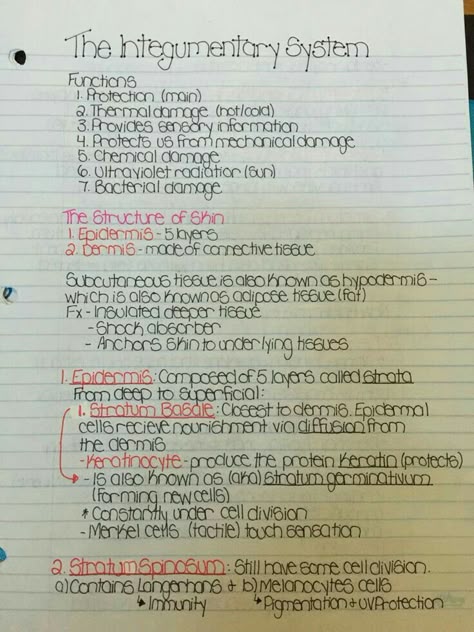 The Integumentary System
Functions
1. Protection (main)
2. Thermal damage (hot/cold)
3. Provides sensory information
4. Protects us from mechanical damage
5. Chemical damage
6. Ultraviolet radiation (sun)
7. Bacterial damage
The Structure of Skin
1. Epidermis - 5 layers
2. Dermis - made of connective tissue
Subcutaneous tissue is also known as hypodermis -
which is also known as adipose tissue (fat)
Fx - Insulated deeper tissue
- Shock absorber
- Anchors skin to underlying tissues
1. Epidermis: Composed of 5 layers called strata
From deep to superficial:
1. Stratum Basale: Closest to dermis. Epidermal
cells recieve nourishment via diffusion from
the dermis
- Keratinocyte - produce the protein keratin (protects)
- Is also known as (aka) stratum germinativum
(forming new cells)
* Constantly under cell division
- Merkel cells (tactile) touch sensation
2. Stratum Spinosum: Still have some cell division.
a) Contains Langerhans + b) Melanocytes cells
↳ Immunity ↳ Pigmentation + UV Protection